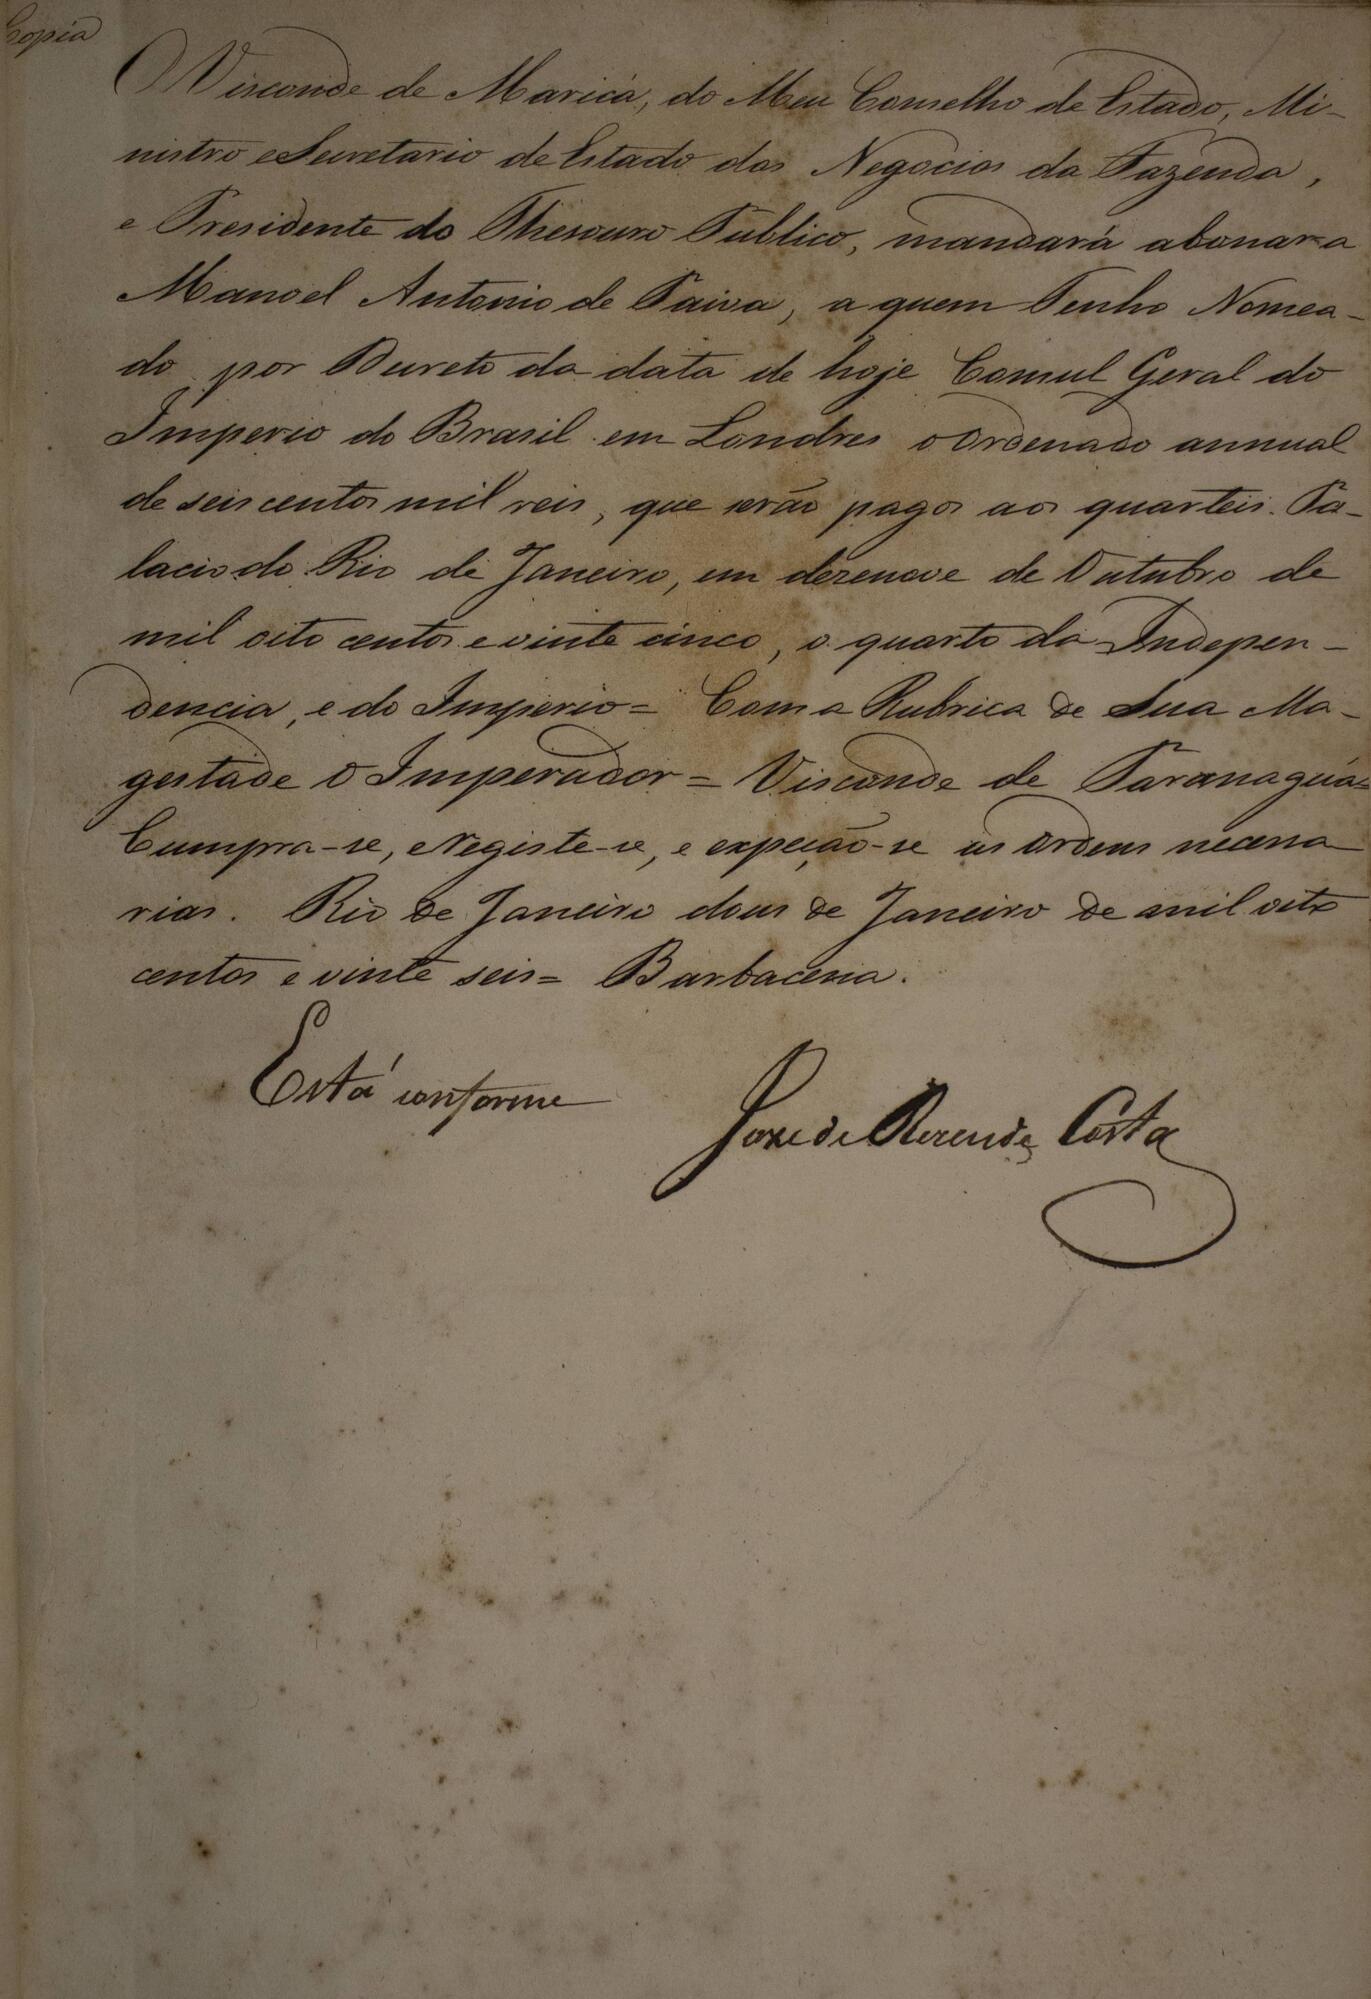 Copia
O Visconde de Maricá, do Meu Conselho de Estado, Mi-
nistro e Secretario de Estado dos Negocios da Fazenda,
e Presidente do Thesouro Publico, mandará abonar a
Manoel Antonio de Paiva, a quem Tenho Nomea-
do por Decreto da data de hoje Consul Geral do
Imperio do Brasil em Londres o Ordenado annual
de seis centos mil reis, que serão pagos aos quarteis. Pa-
lacio do Rio de Janeiro, em dezenove de Outubro de
mil oito centos e vinte cinco, o quarto da Indepen-
dencia, e do Imperio = Com a Rubrica de Sua Ma-
gestade O Imperador = Visconde de Paranaguá =
Cumpra-se, e Registe-se, e expeção-se as Ordens necessa
rias. Rio de Janeiro dous de Janeiro de mil oito
centos e vinte seis = Barbacena.
Está conforme
Joze de Rezende Costa